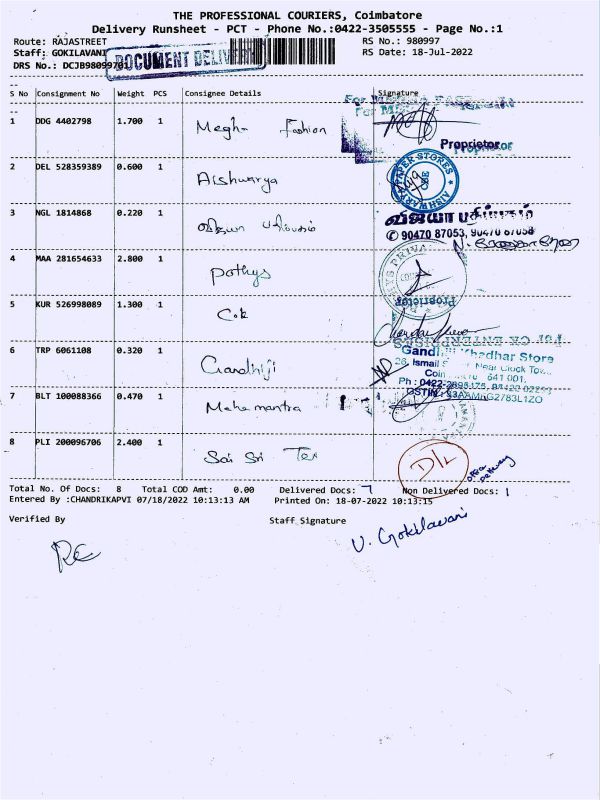 THE PROFESSIONAL COURIERS, Coimbatore
Delivery Runsheet - PCT - Phone No.:0422-3505555 - Page No.:1
Route: RAJASTREET RS No.: 980997
Staff: GOKILAVANI RS Date: 18-Jul-2022
DRS No.: DCJB98099701 DOCUMENT DELIVERY
S No Consignment No Weight PCS Consignee Details Signature
1 DDG 4402798 1.700 1 Megha Fashion
Proprietor
2 DEL 528359389 0.600 1 Aishwarya
AISHWARYA PAPER STORES CBE
3 NGL 1814868 0.220 1 விஜயா பதிப்பகம்
விஜயா பதிப்பகம்
✆ 90470 87053, 90470 87058
4 MAA 281654633 2.800 1 Pothys
Proprietor
5 KUR 526998089 1.300 1 C.k
For CK ENTERPRISES
6 TRP 6061108 0.320 1 Gandhiji
Gandhiji Khadhar Store
Near Clock
641 001.
7 BLT 100088366 0.470 1 Mahamantra
8 PLI 200096706 2.400 1 Sai Sri Tex
D/L
Total No. Of Docs: 8 Total COD Amt: 0.00 Delivered Docs: 7 Non Delivered Docs: 1
Entered By :CHANDRIKAPVI 07/18/2022 10:13:13 AM Printed On: 18-07-2022 10:13:15
Verified By Staff Signature
V. Gokilavani